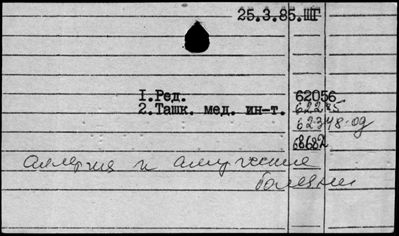 25.3.85.ШГ
1.Ред. 62056
2.Ташк. мед. ин-т. 62235
62348-од
6682
аллергия и аллергические
болезни